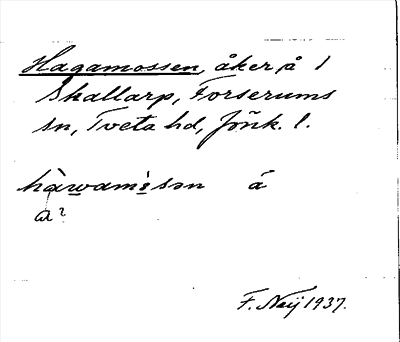 Hagamossen, åker på 1
Skallarp, Forserums
sn, Tveta hd, Jönk. l.
hàwamåsən á
a?
F. Neij 1937.